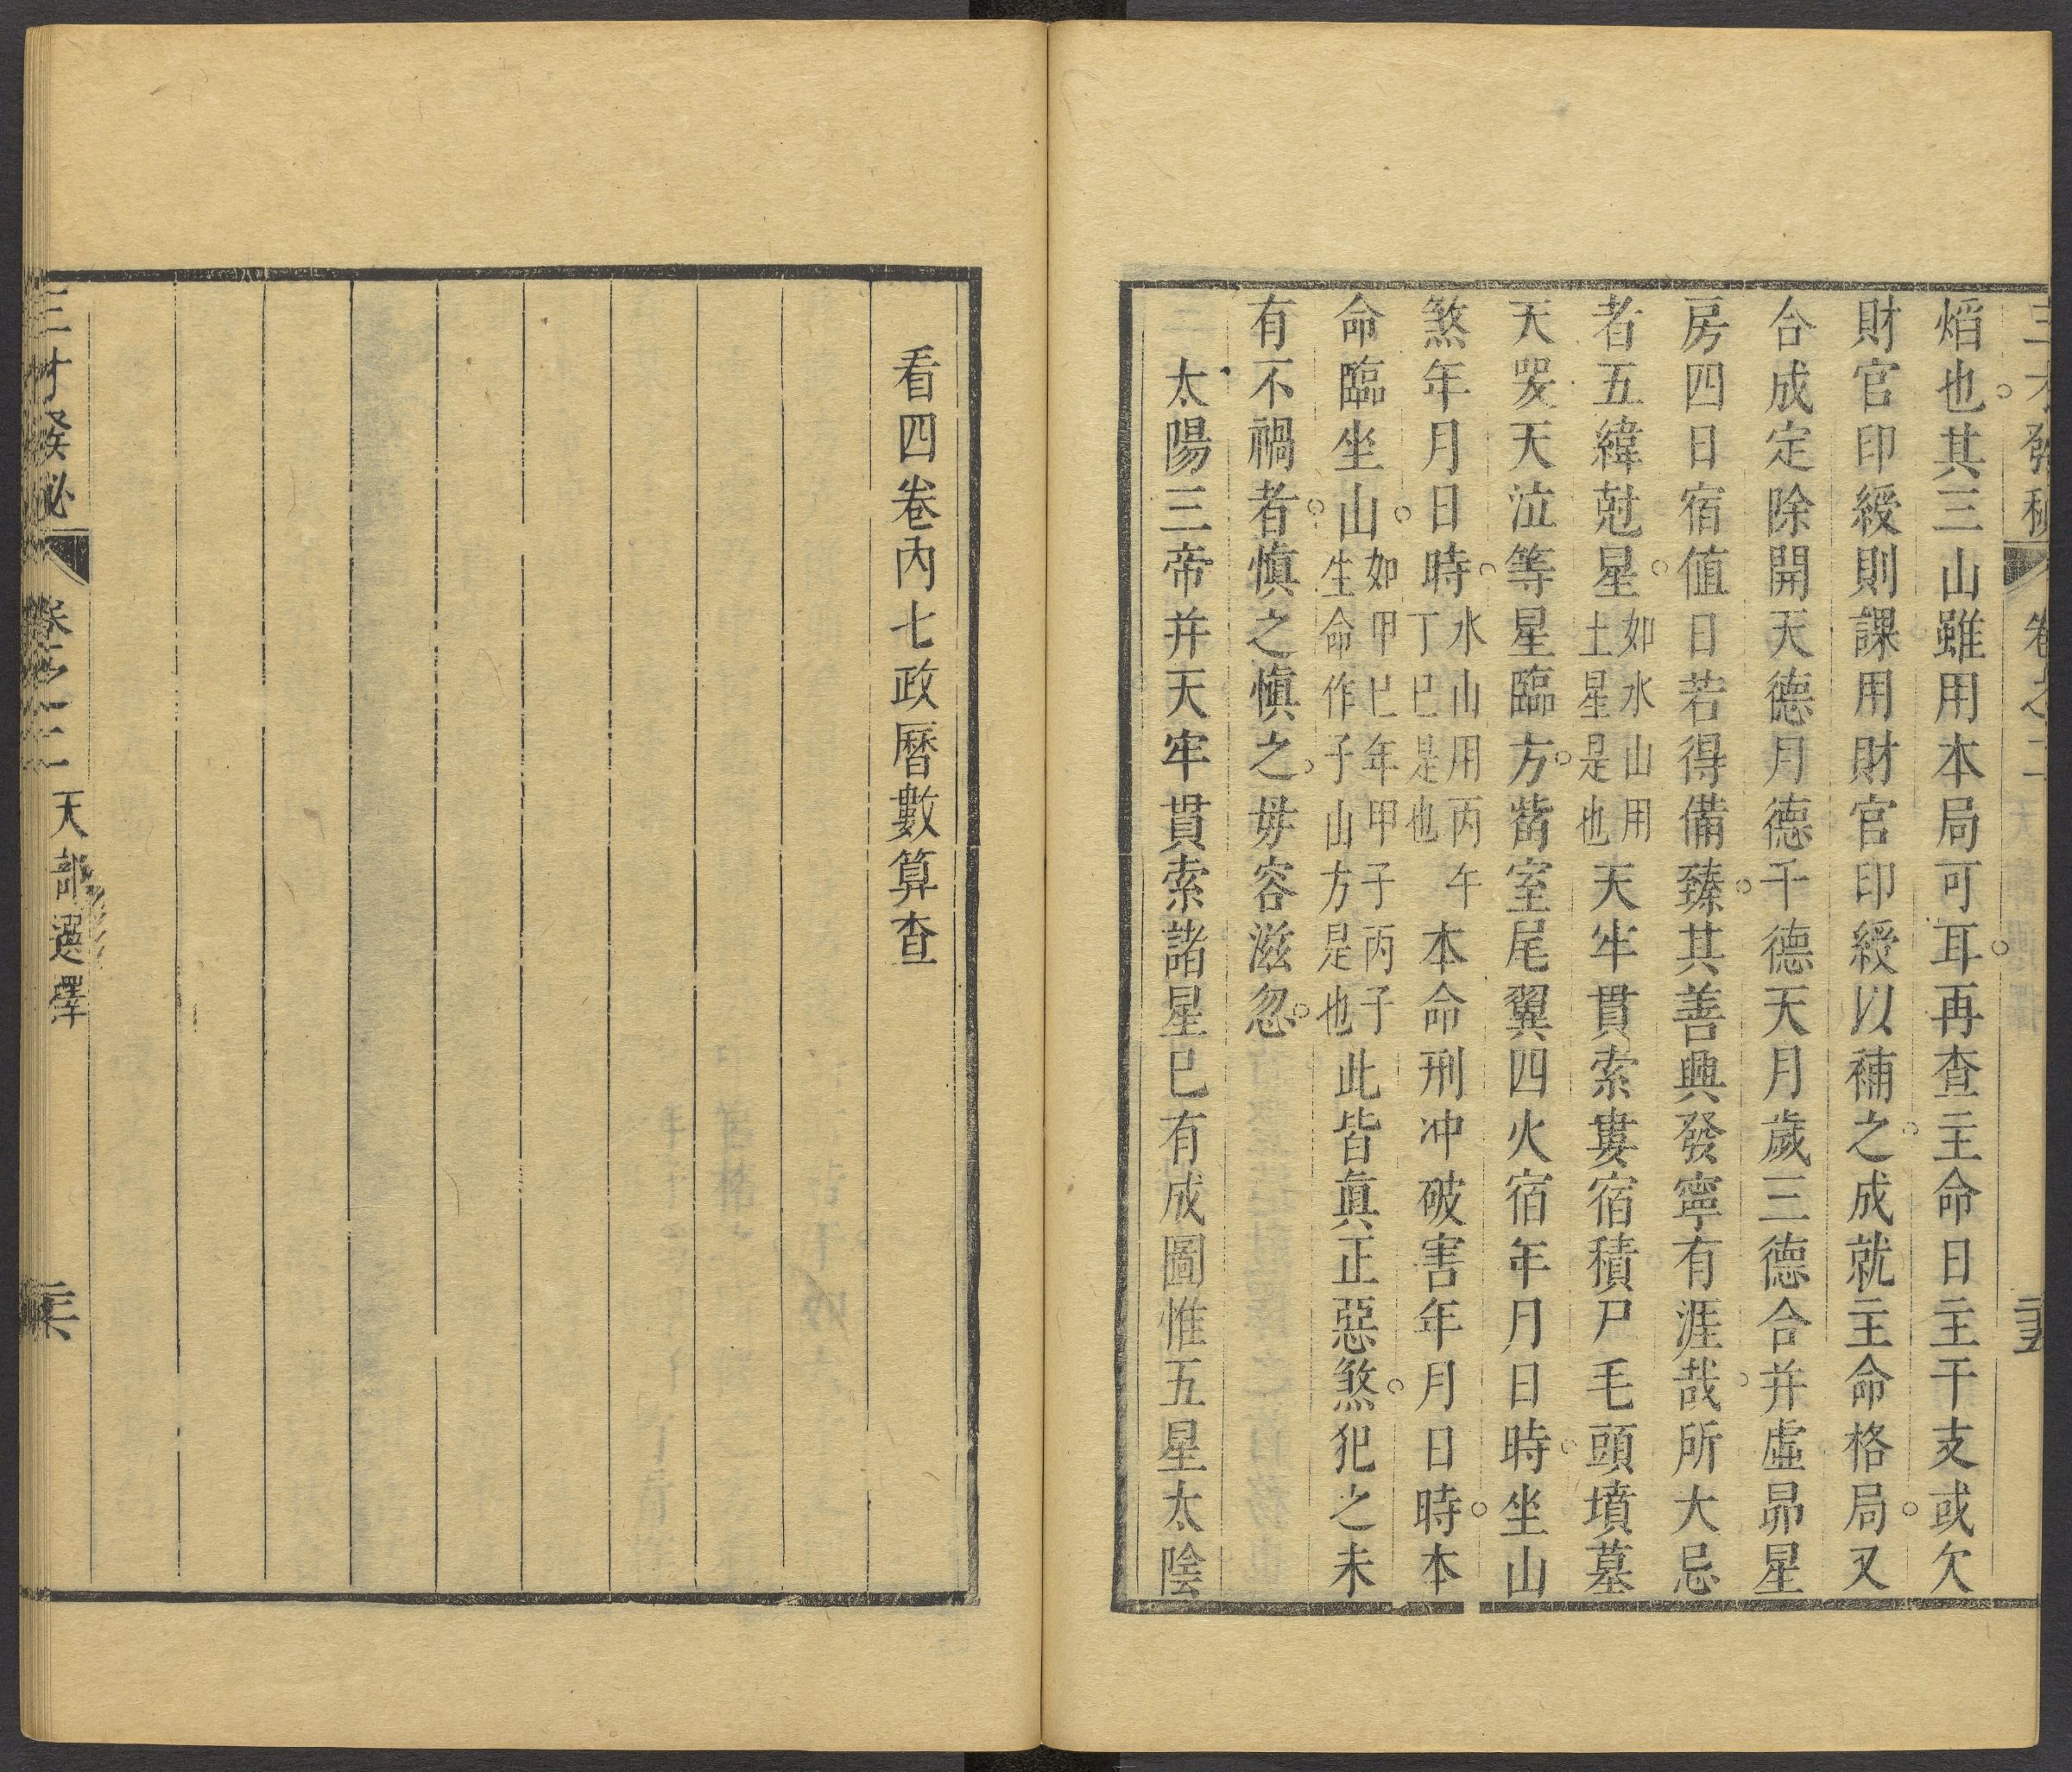 三才發秘 卷之二 天部選擇 二十五
焰也其三山雖用本局可耳再查主命日主干支或欠
財官印綬則課用財官印綬以補之成就主命格局又
合成定除開天德月德千德天月歲三德合并虛昴星
房四日宿值日若得備臻其善興發寧有涯哉所大忌
者五緯尅星如水山用土星是也天牢貫索婁宿積尸毛頭墳墓
天哭天泣等星臨方觜室尾翼四火宿年月日時坐山
煞年月日時水山用丙午丁巳是也本命刑冲破害年月日時本
命臨坐山如甲巳年甲子丙子生命作子山方是也此皆眞正惡煞犯之未
有不禍者愼之愼之毋容滋忽
太陽三帝并天牢貫索諸星已有成圖惟五星太陰
看四卷內七政曆數算查
三才發秘 卷之二 天部選擇 二十六